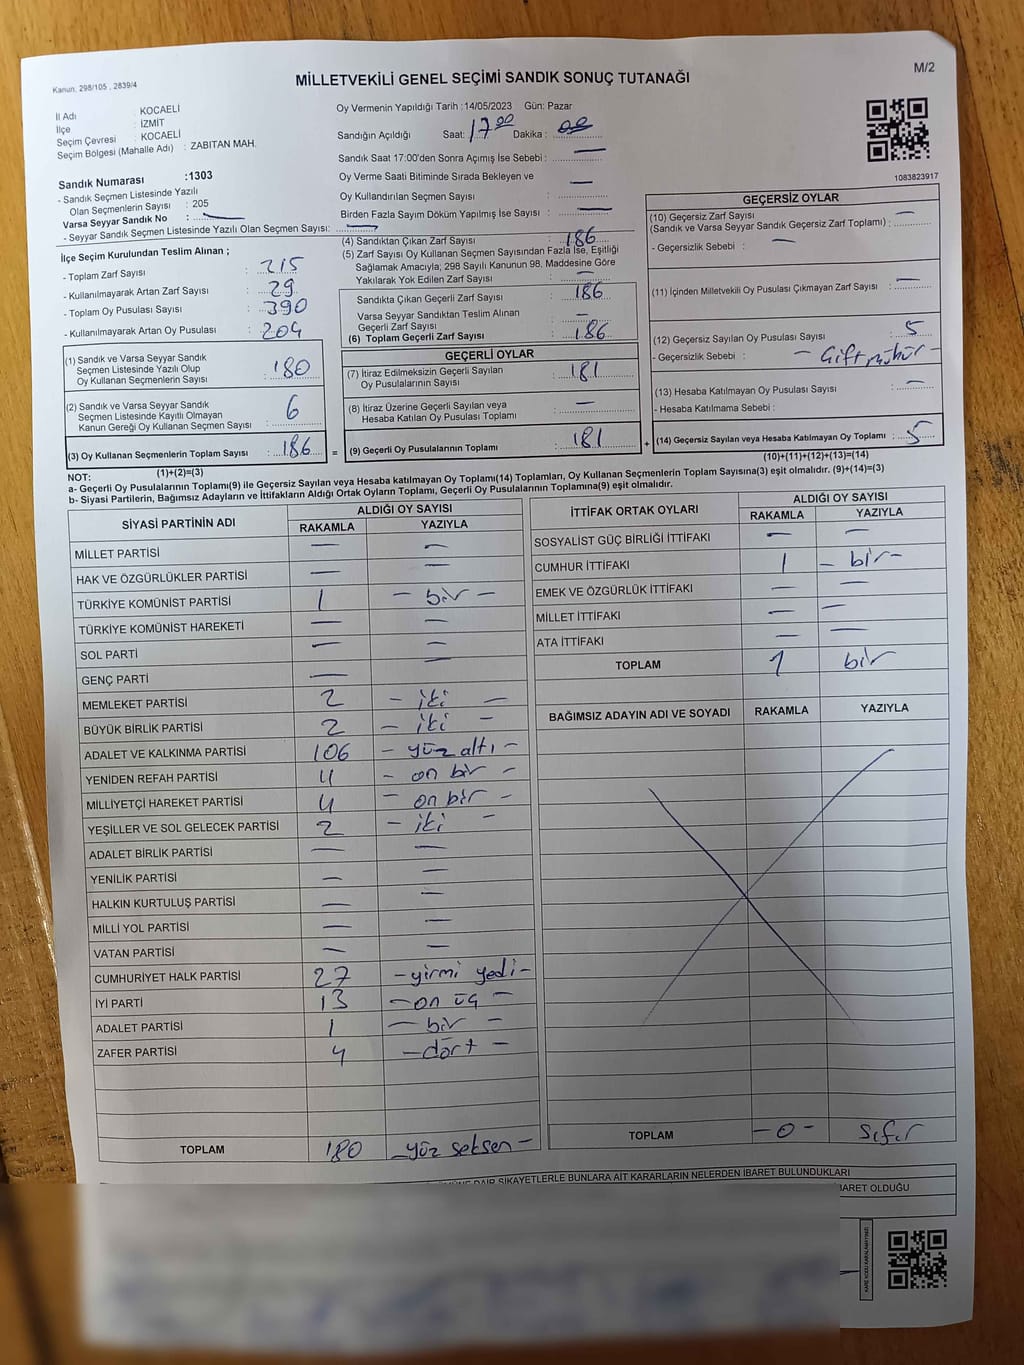 M/2
Kanun, 298/105 , 2839/4
MİLLETVEKİLİ GENEL SEÇİMİ SANDIK SONUÇ TUTANAĞI
İl Adı : KOCAELİ
İlçe : İZMİT
Seçim Çevresi : KOCAELİ
Seçim Bölgesi (Mahalle Adı) : ZABITAN MAH.
Sandık Numarası :1303
- Sandık Seçmen Listesinde Yazılı
Olan Seçmenlerin Sayısı : 205
Varsa Seyyar Sandık No : —
- Seyyar Sandık Seçmen Listesinde Yazılı Olan Seçmen Sayısı: —
İlçe Seçim Kurulundan Teslim Alınan ;
- Toplam Zarf Sayısı : 215
- Kullanılmayarak Artan Zarf Sayısı : 29
- Toplam Oy Pusulası Sayısı : 390
- Kullanılmayarak Artan Oy Pusulası : 204
(1) Sandık ve Varsa Seyyar Sandık
Seçmen Listesinde Yazılı Olup
Oy Kullanan Seçmenlerin Sayısı : 180
(2) Sandık ve Varsa Seyyar Sandık
Seçmen Listesinde Kayıtlı Olmayan
Kanun Gereği Oy Kullanan Seçmen Sayısı : 6
(3) Oy Kullanan Seçmenlerin Toplam Sayısı : 186
Oy Vermenin Yapıldığı Tarih :14/05/2023 Gün: Pazar
Sandığın Açıldığı Saat: 17 00 Dakika : 00
Sandık Saat 17:00'den Sonra Açımış İse Sebebi : —
Oy Verme Saati Bitiminde Sırada Bekleyen ve
Oy Kullandırılan Seçmen Sayısı : —
Birden Fazla Sayım Döküm Yapılmış İse Sayısı : —
(4) Sandıktan Çıkan Zarf Sayısı : 186
(5) Zarf Sayısı Oy Kullanan Seçmen Sayısından Fazla İse, Eşitliği
Sağlamak Amacıyla; 298 Sayılı Kanunun 98. Maddesine Göre
Yakılarak Yok Edilen Zarf Sayısı : —
Sandıkta Çıkan Geçerli Zarf Sayısı : 186
Varsa Seyyar Sandıktan Teslim Alınan
Geçerli Zarf Sayısı : —
(6) Toplam Geçerli Zarf Sayısı : 186
GEÇERLİ OYLAR
(7) İtiraz Edilmeksizin Geçerli Sayılan
Oy Pusulalarının Sayısı : 181
(8) İtiraz Üzerine Geçerli Sayılan veya
Hesaba Katılan Oy Pusulası Toplamı : —
= (9) Geçerli Oy Pusulalarının Toplamı : 181 +
1083823917
GEÇERSİZ OYLAR
(10) Geçersiz Zarf Sayısı
(Sandık ve Varsa Seyyar Sandık Geçersiz Zarf Toplamı) : —
- Geçersizlik Sebebi : —
(11) İçinden Milletvekili Oy Pusulası Çıkmayan Zarf Sayısı : —
(12) Geçersiz Sayılan Oy Pusulası Sayısı : 5
- Geçersizlik Sebebi : – Çift mühür –
(13) Hesaba Katılmayan Oy Pusulası Sayısı : —
- Hesaba Katılmama Sebebi :
(14) Geçersiz Sayılan veya Hesaba Katılmayan Oy Toplamı : 5
(1)+(2)=(3)
(10)+(11)+(12)+(13)=(14)
NOT:
a- Geçerli Oy Pusulalarının Toplamı(9) ile Geçersiz Sayılan veya Hesaba katılmayan Oy Toplamı(14) Toplamları, Oy Kullanan Seçmenlerin Toplam Sayısına(3) eşit olmalıdır. (9)+(14)=(3)
b- Siyasi Partilerin, Bağımsız Adayların ve İttifakların Aldığı Ortak Oyların Toplamı, Geçerli Oy Pusulalarının Toplamına(9) eşit olmalıdır.
SİYASİ PARTİNİN ADI ALDIĞI OY SAYISI
RAKAMLA YAZIYLA
MİLLET PARTİSİ — —
HAK VE ÖZGÜRLÜKLER PARTİSİ — —
TÜRKİYE KOMÜNİST PARTİSİ 1 – bir –
TÜRKİYE KOMÜNİST HAREKETİ — —
SOL PARTİ — —
GENÇ PARTİ — —
MEMLEKET PARTİSİ 2 – iki –
BÜYÜK BİRLİK PARTİSİ 2 – iki –
ADALET VE KALKINMA PARTİSİ 106 – yüz altı –
YENİDEN REFAH PARTİSİ 11 – on bir –
MİLLİYETÇİ HAREKET PARTİSİ 11 – on bir –
YEŞİLLER VE SOL GELECEK PARTİSİ 2 – iki –
ADALET BİRLİK PARTİSİ — —
YENİLİK PARTİSİ — —
HALKIN KURTULUŞ PARTİSİ — —
MİLLİ YOL PARTİSİ — —
VATAN PARTİSİ — —
CUMHURİYET HALK PARTİSİ 27 – yirmi yedi –
İYİ PARTİ 13 – on üç –
ADALET PARTİSİ 1 – bir –
ZAFER PARTİSİ 4 – dört –
TOPLAM 180 – yüz seksen –
İTTİFAK ORTAK OYLARI ALDIĞI OY SAYISI
RAKAMLA YAZIYLA
SOSYALİST GÜÇ BİRLİĞİ İTTİFAKI — —
CUMHUR İTTİFAKI 1 – bir –
EMEK VE ÖZGÜRLÜK İTTİFAKI — —
MİLLET İTTİFAKI — —
ATA İTTİFAKI — —
TOPLAM 1 bir
BAĞIMSIZ ADAYIN ADI VE SOYADI RAKAMLA YAZIYLA
TOPLAM – 0 – sıfır
DAİR ŞİKAYETLERLE BUNLARA AİT KARARLARIN NELERDEN İBARET BULUNDUKLARI
İBARET OLDUĞU